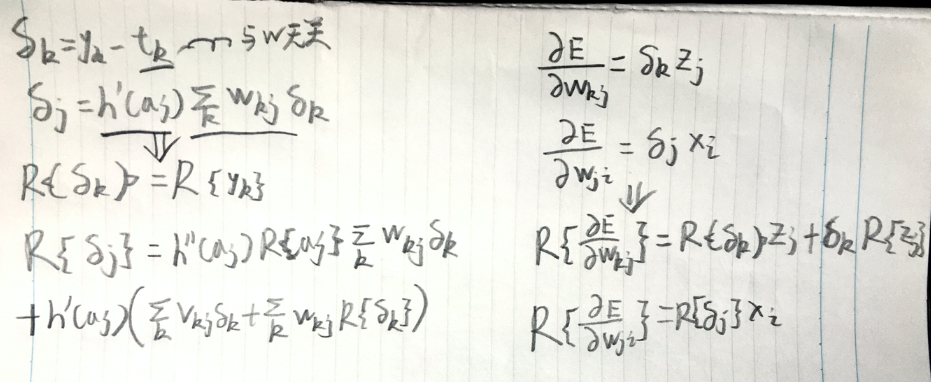 δk = yk - tk 与w无关
δj = h'(aj) Σk wkj δk
⇓
R{δk} = R{yk}
R{δj} = h''(aj) R{aj} Σk wkj δk
+ h'(aj)(Σk vkj δk + Σk wkj R{δk})
∂E/∂wkj = δk zj
∂E/∂wji = δj xi
⇓
R{∂E/∂wkj} = R{δk} zj + δk R{zj}
R{∂E/∂wji} = R{δj} xi